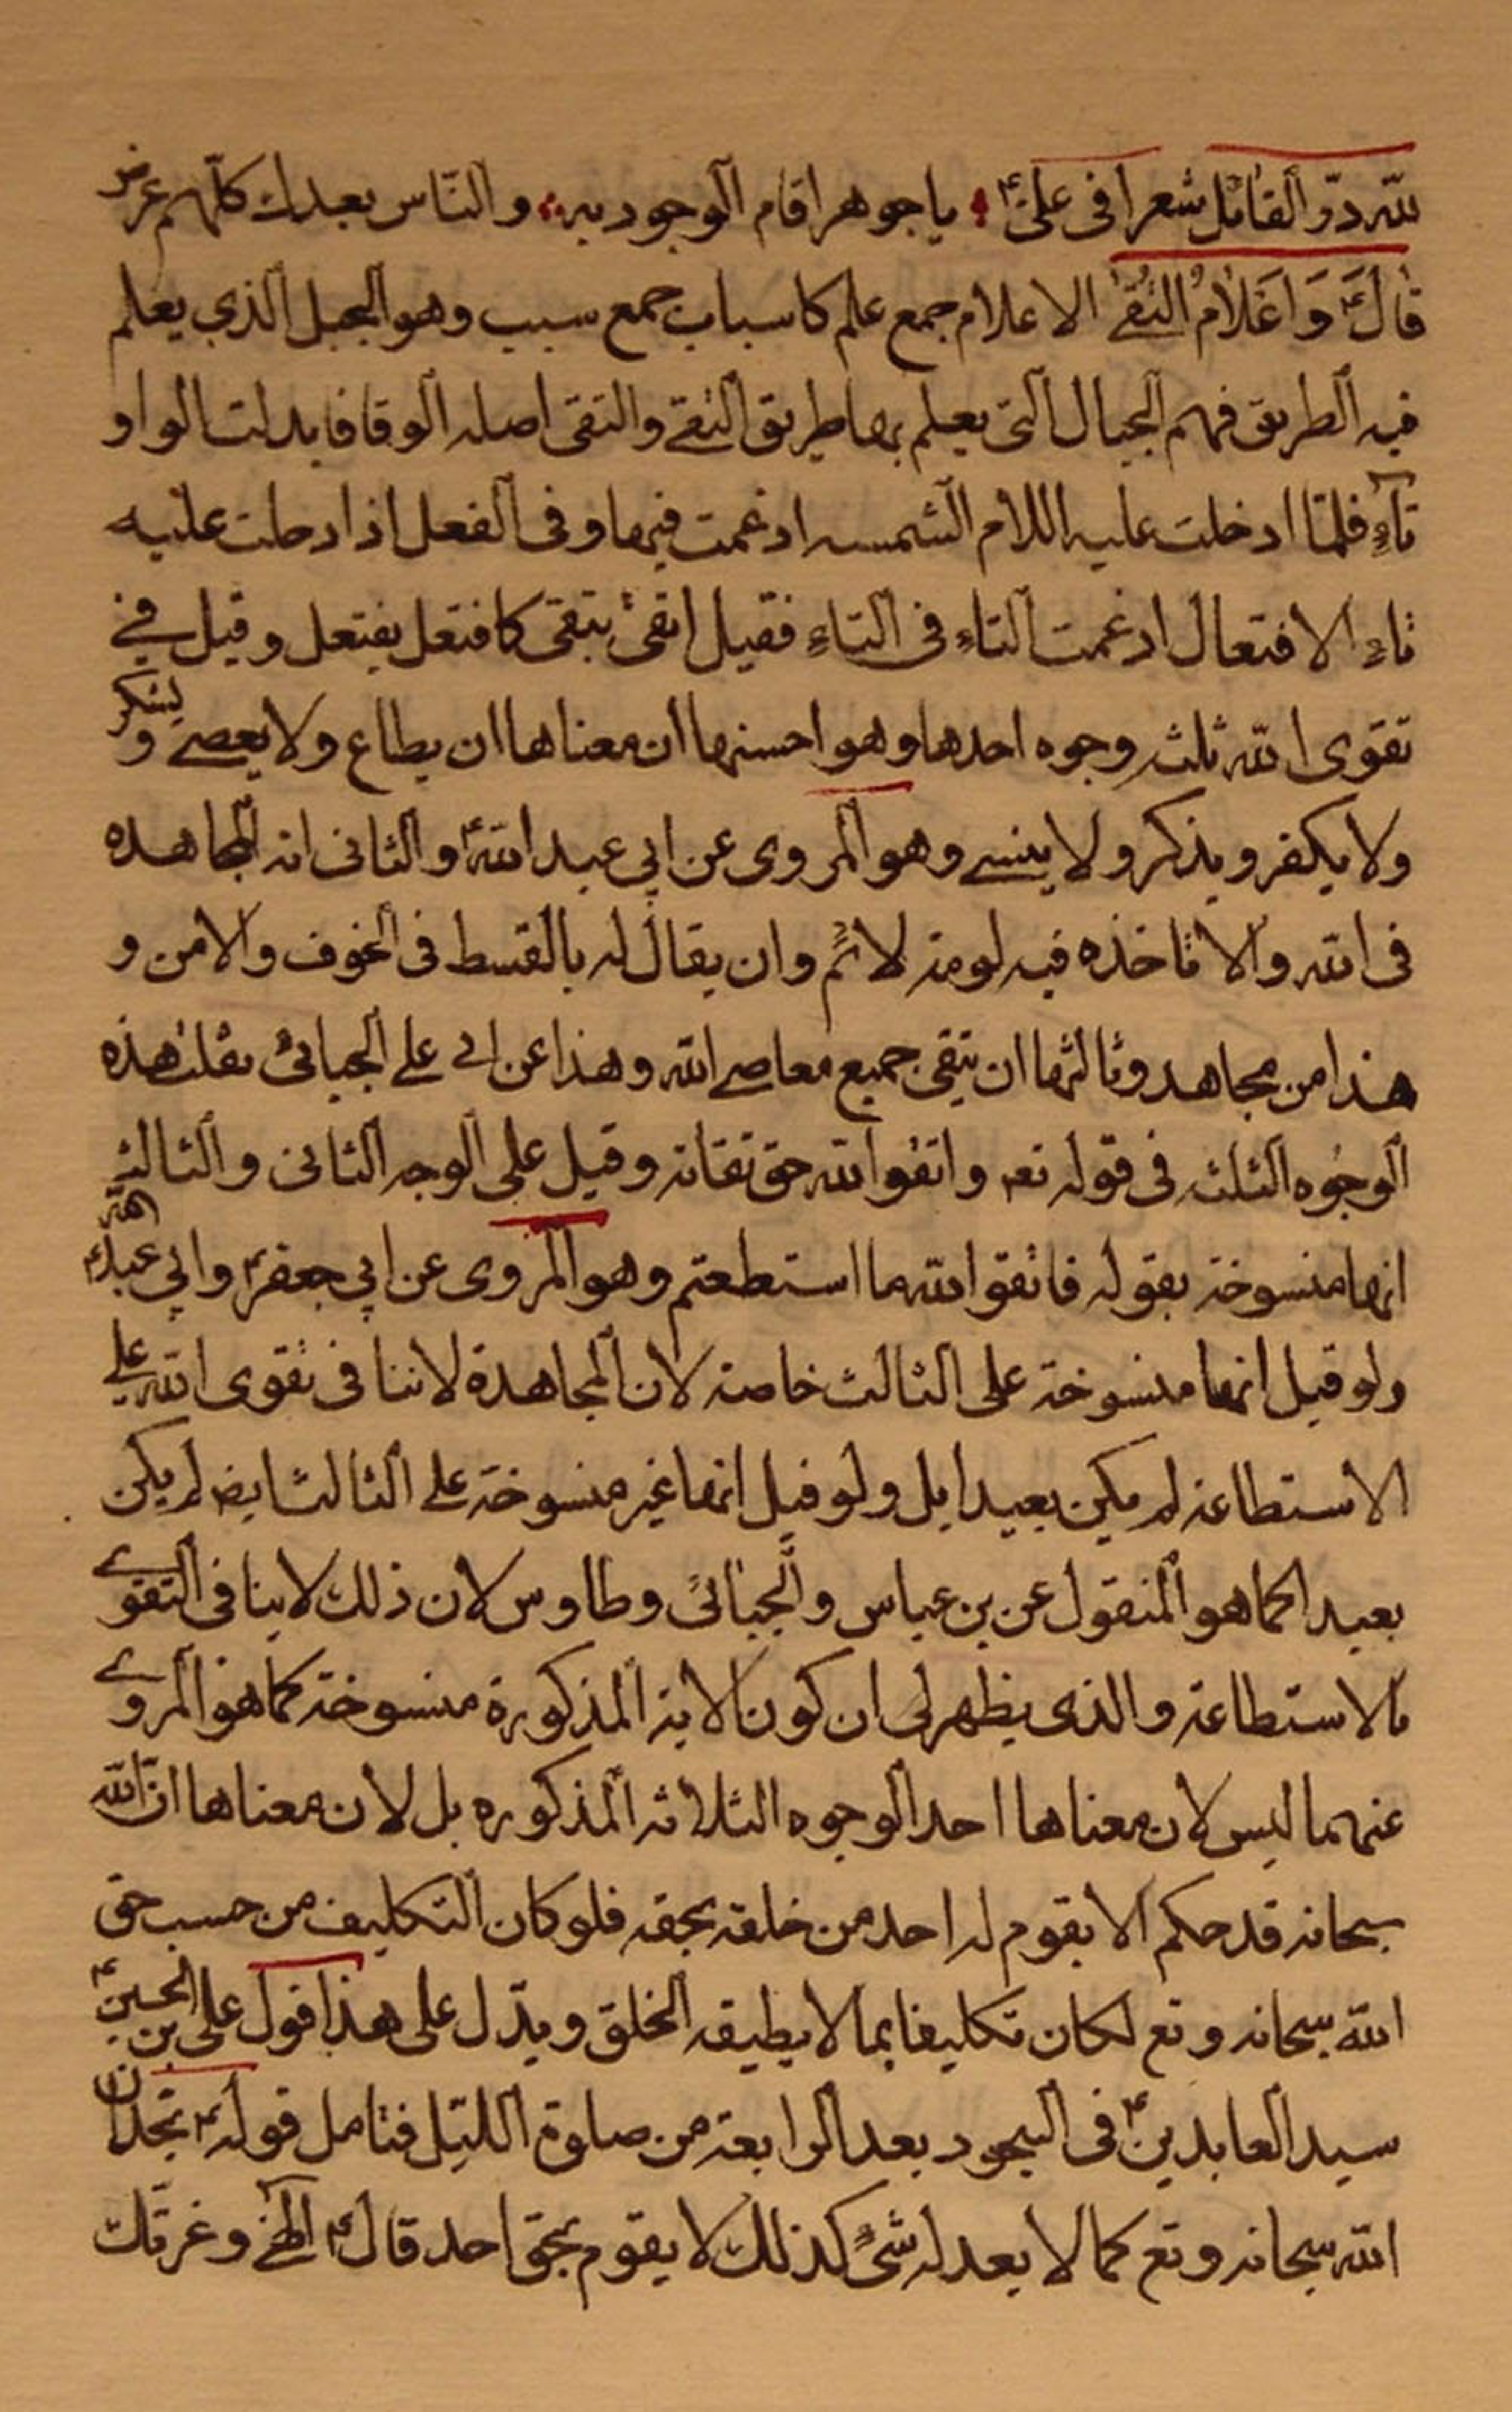 لله درّ القائل شعرا في علىّ ع ياجوهرا قام الوجود به والناس بعدك كلّهم عرض
قالَ ع وَاَعْلامُ التُّقىٰ الاعلام جمع علم كاسباب جمع سبب وهو الجبل الذي يعلم
فيه الطريق فهم الجبال التى يعلم بها طريق التقے والتقى اصله الوقا فابدلت الواو
تاء فلمّا ادخلت عليه اللام الشمسه ادغمت فيها وفى الفعل اذا دخلت عليه
تاء الافتعال ادغمت التاء فى التاء فقيل اتقى يتقى كافتعل يفتعل وقيل في
تقوى الله ثلث وجوه احدها وهو احسنها ان معناها ان يطاع ولا يعصے ويشكر
ولا يكفر ويذكر ولا ينسے وهو المروى عن ابي عبدالله ع والثانى انه المجاهده
فى الله والا تاخذه فيه لومة لائم وان يقال له بالقسط فى الخوف والامن و
هذا من مجاهد وثالثها ان يتقى جميع معاصے الله وهذا عن ابى علے الجبائى نقلت هذه
الوجوه الثلث فى قوله تع واتقوا الله حق تقاته وقيل على الوجه الثانى والثالث
انها منسوخة بقوله فاتقوا الله ما استطعتم وهو المروى عن ابي جعفر ع وابي عبد الله ع
ولو قيل انها منسوخة على الثالث خاصة لان المجاهدة لاتنافى تقوى الله علے
الاستطاعة لم يكن بعيدا بل ولو قيل انها غير منسوخة على الثالث ايض لم يكن
بعيدا كما هو المنقول عن بن عباس والجبائى وطاوس لان ذلك لا ينافى التقوے
بالاستطاعة والذى يظهر لى ان كون الاية المذكورة منسوخة كما هو المروے
عنهما ليس لان معناها احد الوجوه الثلاثه المذكوره بل لان معناها انّ الله
سبحانه قد حكم الا يقوم له احد من خلقه بحقه فلو كان التكليف من حسب حق
الله سبحانه وتع لكان تكليفا بما لا يطيقه الخلق ويدّل على هذا قول على بن الحسين ع
سيد العابدين ع فى السجود بعد الرابعة من صلوة الليل فتامل قوله ع تجد ان
الله سبحانه وتع كما لا يعدله شئ كذلك لا يقوم بحق احد قال ع الهى وعزتك